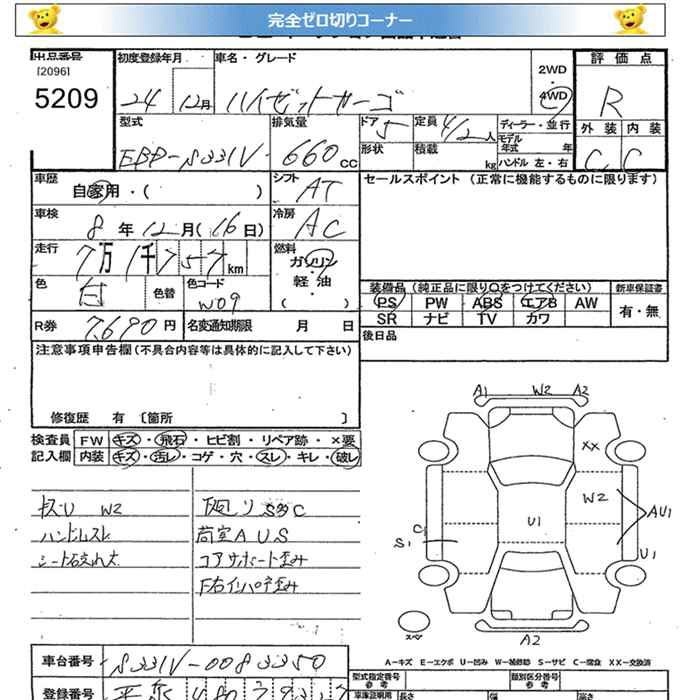 完全ゼロ切りコーナー
出品番号 初度登録年月 車名・グレード 2WD 評価点
[2096] 4WD
5209 24 12月 ハイゼットカーゴ R
型式 排気量 ドア 定員 ディーラー・並行 外装 内装
5 4/2人 モデル年式 年
EBD-S331V 660cc 形状 積載 kg ハンドル 左・右 C C
車歴 自家用・( ) シフト AT セールスポイント (正常に機能するものに限ります)
車検 8年12月(16日) 冷房 AC
走行 7万1千757km 燃料 ガソリン・軽油・( )
色 白 色替 色コード W09
装備品 (純正品に限り○をつけてください) 新車保証書
PS PW ABS エアB AW 有・無
SR ナビ TV カワ
R券 7,690円 名変通知期限 月 日 後日品
注意事項申告欄 (不具合内容等は具体的に記入して下さい)
修復歴 有 〔箇所 〕
検査員 FW キズ・飛石・ヒビ割・リペア跡・×要
記入欄 内装 キズ・汚レ・コゲ・穴・スレ・キレ・破レ
W2
ハンドルスレ 荷室AUS
コアサポート歪み
A1 W2 A2
XX
W2
U1 AU1
C
S1 U1
スペア
A2
A-キズ E-エクボ U-凹み W-補修跡 S-サビ C-腐食 XX-交換済
車台番号 S331V-0083350 型式指定番号 参考 類別区分番号 参考
登録番号 480 車庫証明用 長さ 幅 高さ